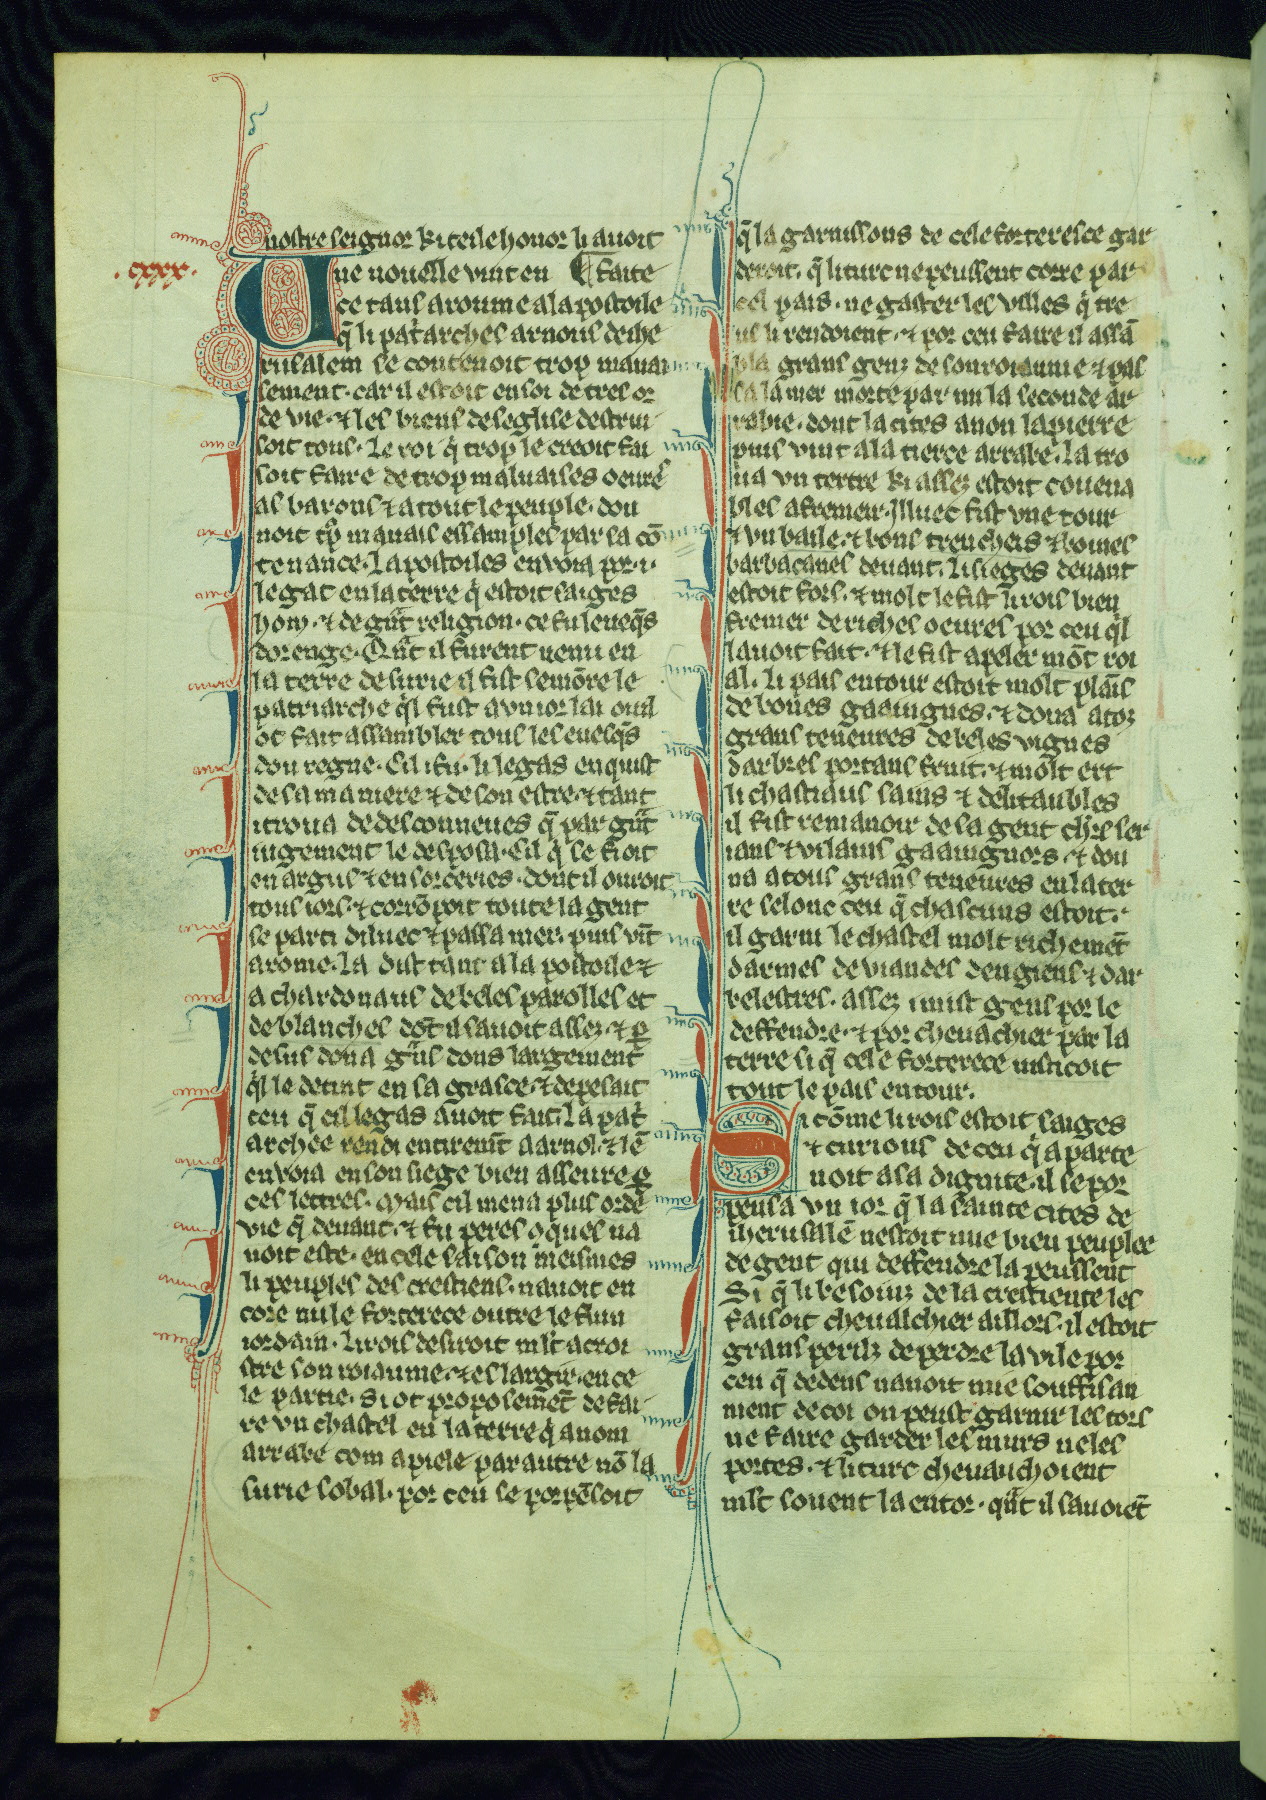 nostre seignor ki tele honor li auoit
.cxxx.
Une nouelle vint en ¶ faite
ce tans a roume a lapostoile
q̃ li pat̾arches arnous de ihe
rusalem se contenoit trop mauai
sement. car il estoit en soi de tres or
de vie. ⁊ les biens de seglise destrui
soit tous. Le roi q̃ trop le creoit fai
soit faire de trop maluaises oeures
as barons ⁊ a tout le peuple. don
noit t̾p mauais essamples par sa cō
tenance. Lapostoiles enuoia por .i.
legat en la terre q̃ estoit saiges
hom. ⁊ de gñt religion. ce fu leueq̃s
dorenge. Qñt il furent uenu en
la terre de surie il fist semōre le
patriarche q̃l fust a vn ior lai ou il
ot fait assambler tous les euesq̃s
dou regne. Cil i fu. li legas enquist
de sa maniere ⁊ de son estre. ⁊ tant
i troua de desconneues q̃ par gñt
iugement le desposa. Cil q̃ se fioit
en argus ⁊ en sorceries. dont il ouroit
tous iors. ⁊ corrōpoit toute la gent
se parti diluec ⁊ passa mer. puis vīt
a rome. La dist tant a la postoile ⁊
a chardonaus de beles parolles et
de blanches dōt il sauoit assez. ⁊ p̱
desus dona gñs dons largement
q̃l le detint en sa grasce. ⁊ depesait
ceu q̃ cil legas auoit fait. La pat̾
archee rendi entiremēt a arnol. ⁊ lē
enuoia en son siege bien asseure p̱
ces lettres. Mais cil mena plus orde
vie q̃ deuant. ⁊ fu peres q̃ques na
uoit este. en cele saison meismes
li peuples des crestiens. nauoit en
core nule forterece outre le flun
iordain. li rois desiroit mlt̾ acroi
stre son roiaume. ⁊ eslargir. en ce
le partie. si ot proposemēt de fai
re vn chastel en la terre q̃ a nom
arrabe com apiele par autre nō la
surie sobal. por ceu se porpēsoit
q̃ la garnissons de cele forteresce gar
deroit. q̃ li turc ne peussent corre par
cel pais. ne gaster les villes q̃ tre
us li rendoient. ⁊ por ceu faire il assā
bla grans genz de son roiaume ⁊ pas
sa la mer morte par mi la seconde ar
rabie. dont la cites a non la pierre
puis vint a la tierce arrabe. La tro
ua vn tertre ki assez estoit couena
bles a fremeir. Illuec fist vne tour
⁊ vn baile. ⁊ bons trencheis ⁊ boines
barbacanes deuant. Li sieges deuant
estoit fors. ⁊ molt le fist li rois bien
fremer de riches oeures por ceu q̃l
lauoit fait. ⁊ le fist apeler mōt roi
al. Li pais entour estoit molt plāis
de bones gaaingnes. ⁊ dona a toz
grans teneures de beles vignes
darbres portans fruit. ⁊ molt ert
li chastiaus sains ⁊ delitaubles
il fist remanoir de sa gent ch̾rs ser
ians ⁊ vilains gaaingnors. ⁊ don
na a tous grans teneures en la ter
re selonc ceu q̃ chascuns estoit.
il garni le chastel molt richemēt
darmes de viandes dengiens ⁊ dar
belestres. assez i mist gens por le
deffendre. ⁊ por cheuachier par la
terre si q̃ cele forterece iusticoit
tout le pais entour.
Si cōme li rois estoit saiges
⁊ curious de ceu q̃ aparte
noit a sa dignite. il se por
pensa vn ior q̃ la sainte cites de
iherusalē nestoit mie bien peuplee
de gent qui deffendre la peussent
Si q̃ li besoinz de la crestiente les
faisoit cheualchier aillors. il estoit
grans perilz de perdre la vile por
ceu q̃ dedens nauoit mie souffisan
ment de coi on peust garnir les tors
ne faire garder les murs ne les
portes. ⁊ li turc cheuauchoient
mlt̾ souent la entor. qñt il sauoiēt